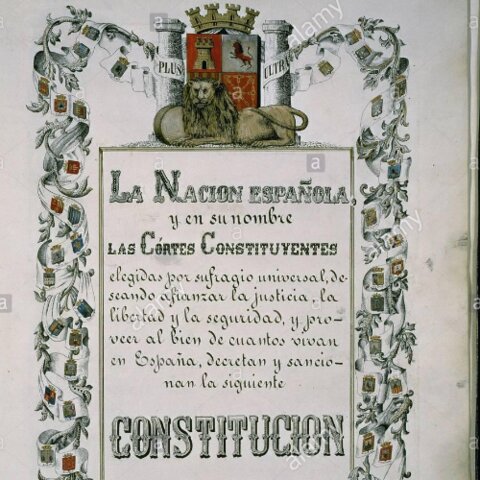 PLUS ULTRA
LA NACION ESPAÑOLA,
y en su nombre
LAS CÓRTES CONSTITUYENTES
elegidas por sufragio universal, de-
seando afianzar la justicia, la
libertad y la seguridad, y pro-
veer al bien de cuantos vivan
en España, decretan y sancio-
nan la siguiente
CONSTITUCION
alamy
alamy
alamy
alamy